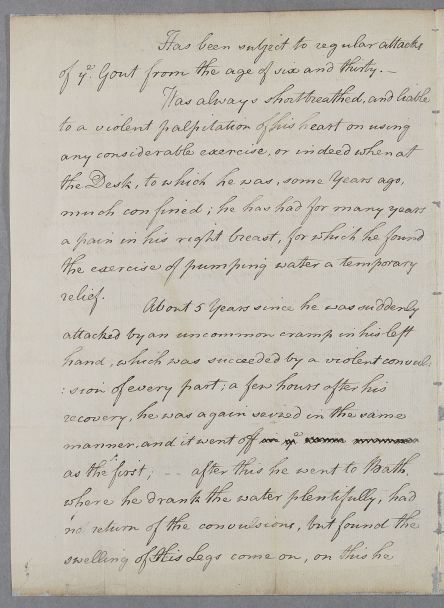 Has been subject to regular attacks
of yͤ. Gout from the age of six and thirty. –
Has always shortbreathed, and liable
to a violent palpitation of his heart on using
any considerable exercise, or indeed when at
the Desk, to which he was, some Years ago,
much confined; he has had for many years
a pain in his right breast, for which he found
the exercise of pumping water a temporary
relief. About 5 Years since he was suddenly
attacked by an uncommon cramp in his left
hand, which was succeeded by a violent convul:
:sion of every part; a few hours after his
recovery, he was again seized in the same
manner, and it went off
as the first; after this he went to Bath.
where he drank the water plentifully, had
no return of the convulsions, but found the
swelling of His Legs come on, on this he